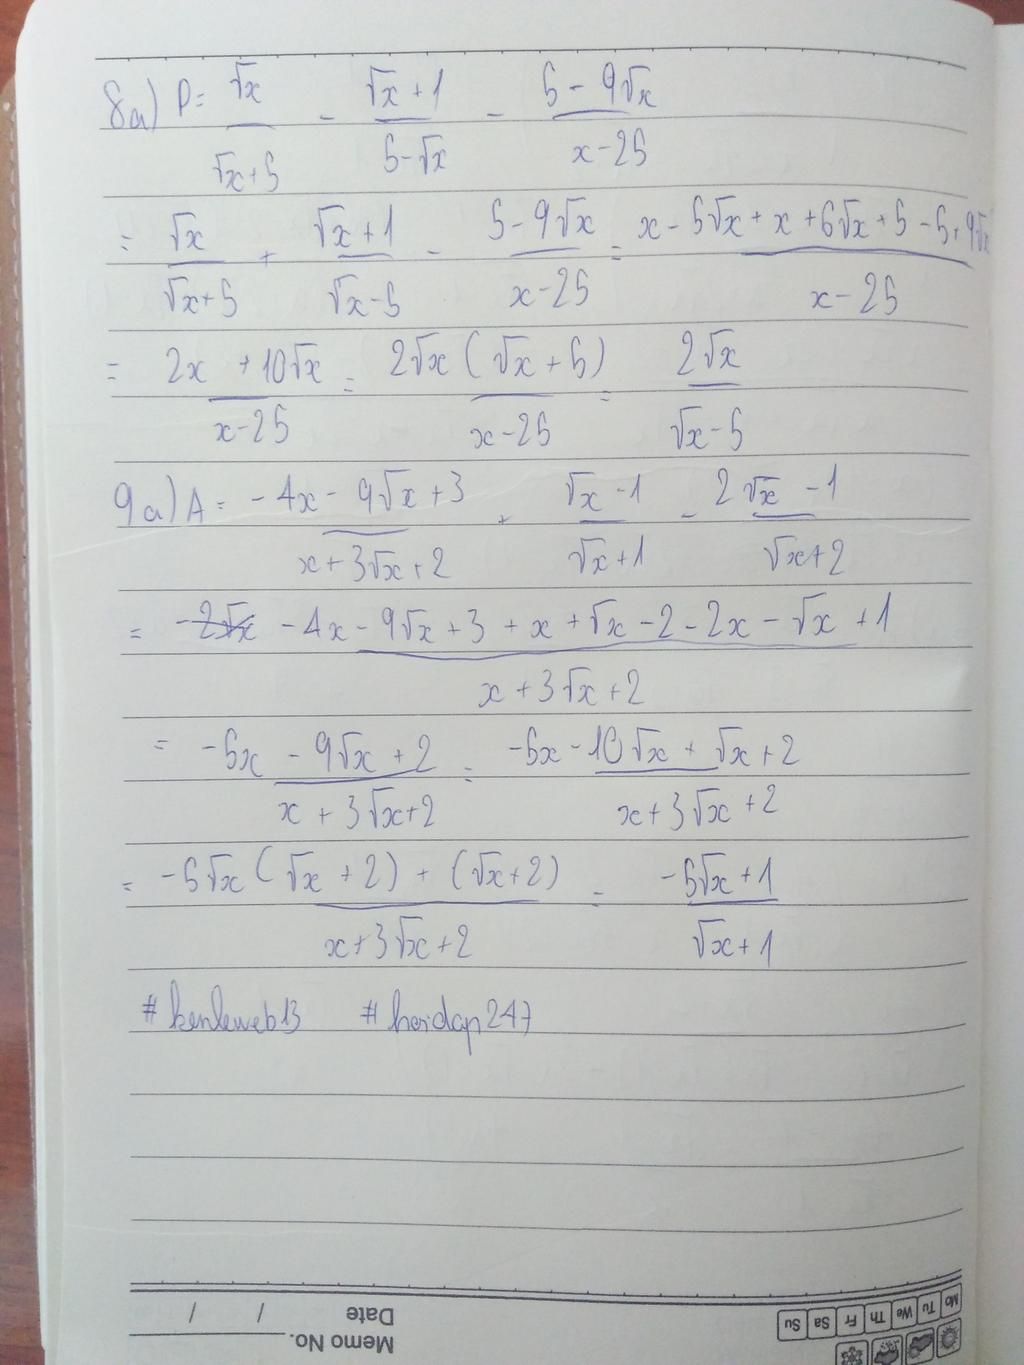 8a) P = √x/(√x+5) - (√x+1)/(5-√x) - (5-9√x)/(x-25)
= √x/(√x+5) + (√x+1)/(√x-5) - (5-9√x)/(x-25) = (x-5√x+x+6√x+5-5+9√x)/(x-25)
= (2x+10√x)/(x-25) = 2√x(√x+5)/(x-25) = 2√x/(√x-5)
9a) A = (-4x-9√x+3)/(x+3√x+2) + (√x-1)/(√x+1) - (2√x-1)/(√x+2)
= (-4x-9√x+3+x+√x-2-2x-√x+1)/(x+3√x+2)
= (-5x-9√x+2)/(x+3√x+2) = (-5x-10√x+√x+2)/(x+3√x+2)
= (-5√x(√x+2)+(√x+2))/(x+3√x+2) = (-5√x+1)/(√x+1)
#kenleweb13 #hoidap247
Memo No.
Date / /
Mo Tu We Th Fr Sa Su